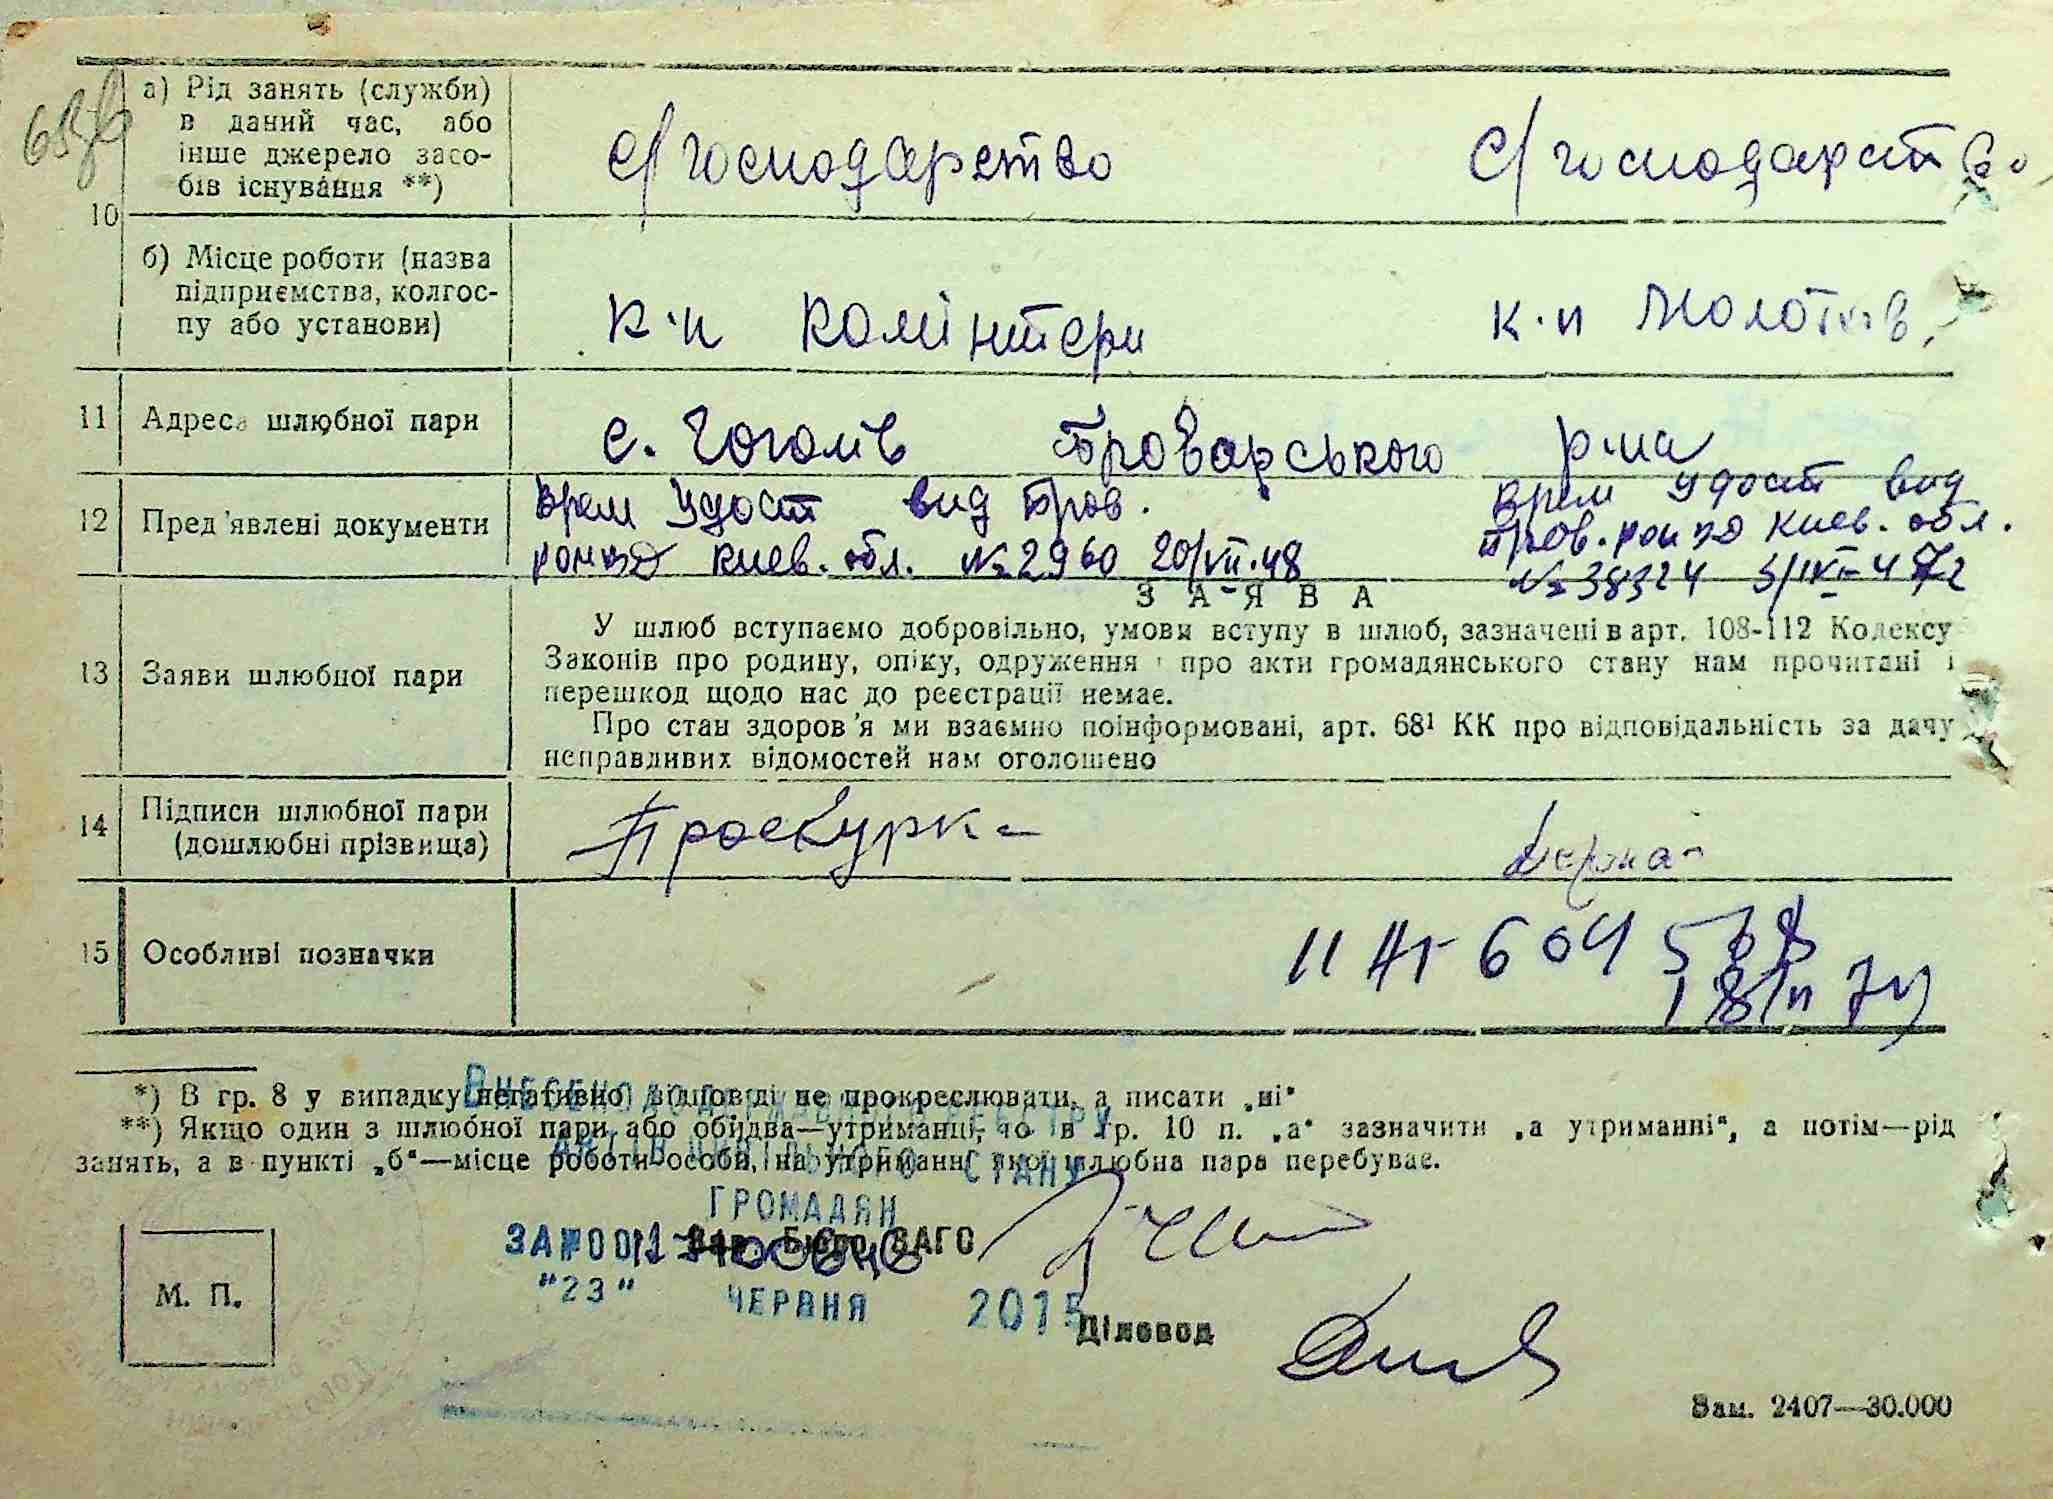 а) Рід занять (служби)
в даний час, або
інше джерело засо-
бів існування **)
с/господарство с/господарство
10
б) Місце роботи (назва
підприємства, колгос-
пу або установи)
к-п Комінтерн к-п Молотов
11 Адреса шлюбної пари
с. Гоголів Броварського р-на
12 Пред'явлені документи
Врем удост вид Бров. Врем удост вид
Киев. обл. № 2960 20/VII-48 Киев. обл.
№ 38324
ЗАЯВА
13 Заяви шлюбної пари
У шлюб вступаємо добровільно, умови вступу в шлюб, зазначені в арт. 108-112 Кодексу
Законів про родину, опіку, одруження і про акти громадянського стану нам прочитані і
перешкод щодо нас до реєстрації немає.
Про стан здоров'я ми взаємно поінформовані, арт. 68¹ КК про відповідальність за дачу
неправдивих відомостей нам оголошено
14 Підписи шлюбної пари
(дошлюбні прізвища)
Проскурка
15 Особливі позначки
604 568
*) В гр. 8 у випадку негативної відповіді не прокреслювати, а писати „ні"
**) Якщо один з шлюбної пари або обидва—утриманці, то в гр. 10 п. „а" зазначити „а утриманні", а потім—рід
занять, а в пункті „б"—місце роботи особи, на утриманні якої шлюбна пара перебуває.
ВНЕСЕНО ДО ДЕРЖАВНОГО РЕЄСТРУ
АКТІВ ЦИВІЛЬНОГО СТАНУ
ГРОМАДЯН
Зав. Бюро ЗАГС
"23" ЧЕРВНЯ 2015
М. П.
Діловод
Зам. 2407—30.000